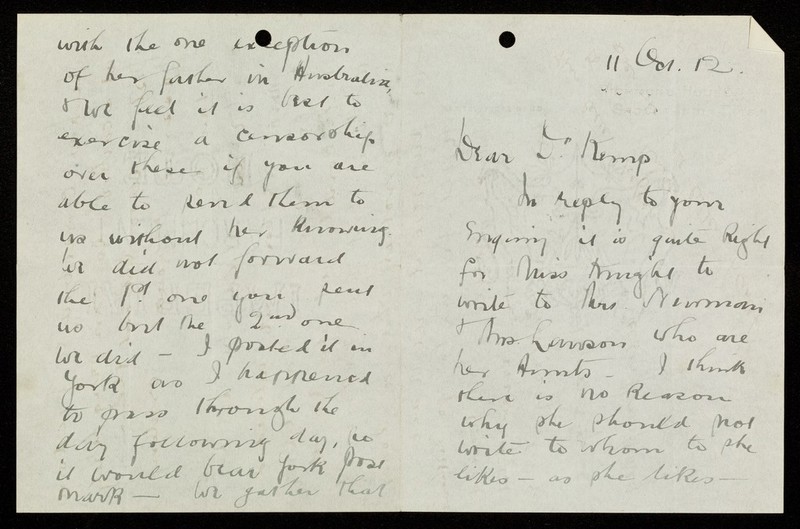 11 Oct. 12.
Dear Dr Kemp
In reply to your
Enquiry it is quite Right
for Miss Knight to
write to Mrs Newman
& Mrs. Lawson who are
her Aunts - I think
there is no Reason
why she should not
write to whom to she
likes - as she likes -
with the one exception
of her father in Australia,
& we feel it is best to
exercise a censorship
over these if you are
able to send them to
us without her knowing.
We did not forward
the 1st one you sent
us but the 2nd one
we did - I posted it in
York as I happened
to pass through the
day following day, so
it would bear York Post
mark - We gather that